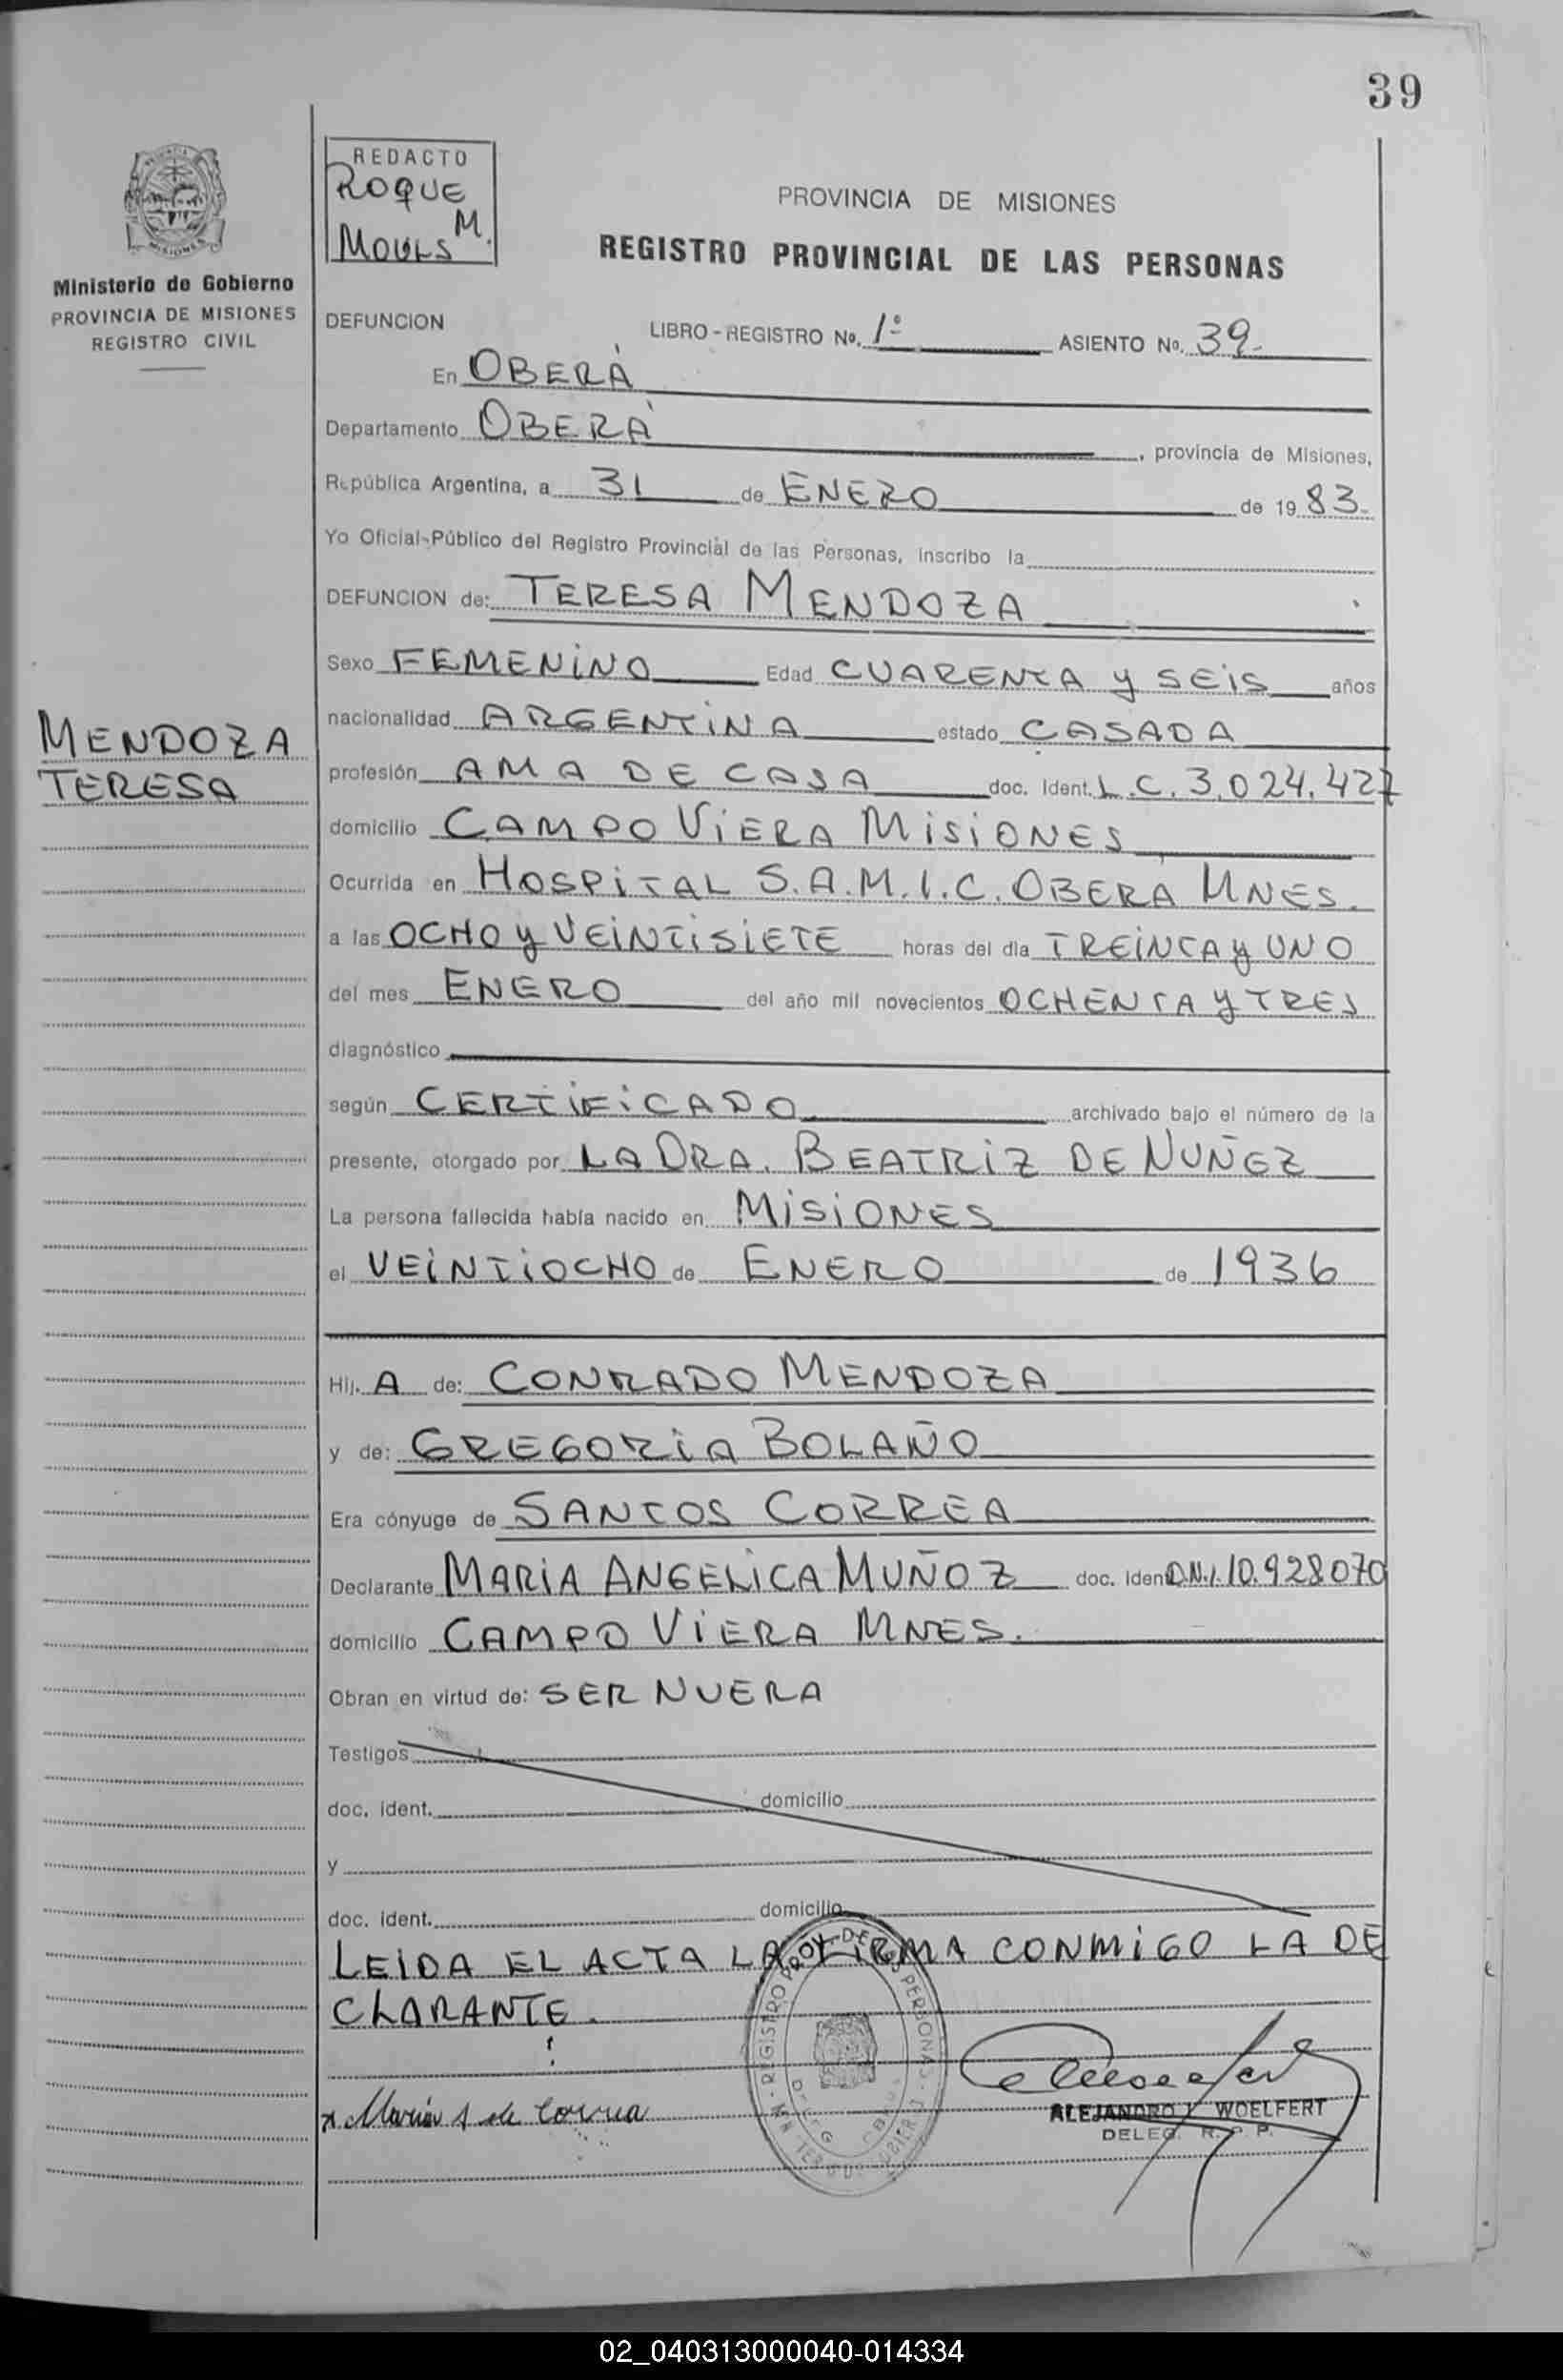 39
REDACTO
ROQUE
M.
PROVINCIA DE MISIONES
REGISTRO PROVINCIAL DE LAS PERSONAS
Ministerio de Gobierno
PROVINCIA DE MISIONES
REGISTRO CIVIL
DEFUNCION LIBRO-REGISTRO No. 1º ASIENTO No. 39-
En OBERÁ
Departamento OBERÁ , provincia de Misiones,
República Argentina, a 31 de ENERO de 1983.
Yo Oficial Público del Registro Provincial de las Personas, inscribo la
DEFUNCION de: TERESA MENDOZA
Sexo FEMENINO Edad CUARENTA Y SEIS años
MENDOZA
TERESA
nacionalidad ARGENTINA estado CASADA
profesión AMA DE CASA doc. ident. L.C. 3.024.427
domicilio CAMPO VIERA MISIONES
Ocurrida en HOSPITAL S.A.M.I.C. OBERA MNES.
a las OCHO Y VEINTISIETE horas del día TREINTA Y UNO
del mes ENERO del año mil novecientos OCHENTA Y TRES
diagnóstico
según CERTIFICADO archivado bajo el número de la
presente, otorgado por LA DRA. BEATRIZ DE NUÑEZ
La persona fallecida había nacido en MISIONES
el VEINTIOCHO de ENERO de 1936
Hij. A de: CONRADO MENDOZA
y de: GREGORIA BOLAÑO
Era cónyuge de SANTOS CORREA
Declarante MARIA ANGELICA MUÑOZ doc. ident. D.N.I. 10.928070
domicilio CAMPO VIERA MNES.
Obran en virtud de: SER NUERA
Testigos
doc. ident. domicilio
y
doc. ident. domicilio
LEIDA EL ACTA LA FIRMA CONMIGO LA DE
CLARANTE.
María A de Correa
ALEJANDRO L. WOELFERT
DELEG. R. P. P.
02_040313000040-014334